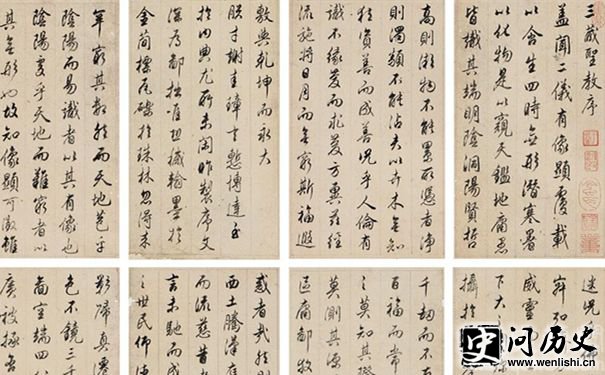 三藏聖教序
蓋聞二儀有像顯覆載
以含生四時無形潛寒暑
以化物是以窺天鑑地庸愚
皆識其端明陰洞陽賢哲
高則微物不能累所憑者淨
則濁類不能沾夫以卉木無知
猶資善而成善況乎人倫有
識不緣慶而求慶方冀茲經
流施將日月而無窮斯福遐
敷與乾坤而永大
朕才謝珪璋言慙博達至
於內典尤所未閑昨製序文
深為鄙拙唯恐穢翰墨於
金簡標瓦礫於珠林忽得來
罕窮其數然而天地苞乎
陰陽而易識者以其有像也
陰陽處乎天地而難窮者以
其無形也故知像顯可徵雖
迷況
威靈
下大之
千劫而不
百福而
之莫知其際
莫測其源
區庸鄙
惑者哉然則
西土騰漢庭
而流慈昔
言未馳而成
之世民仰
影歸真遷
色不鏡三
圖空端四
廣被拯含
史 问历史
www.wenlishi.cn